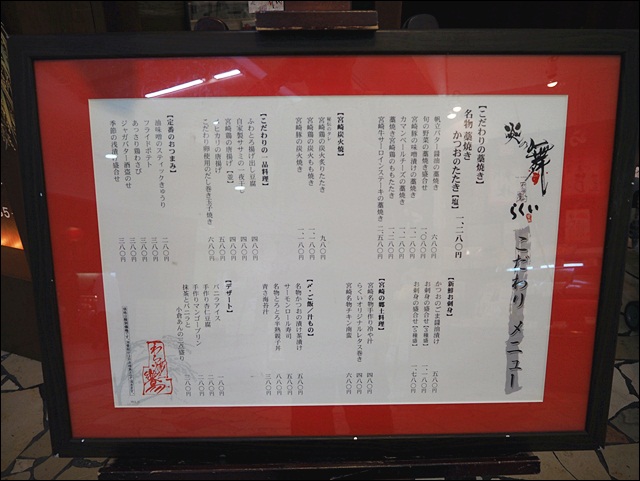 炎の舞
らくい
こだわりメニュー
【こだわりの藁焼き】
名物藁焼き
かつおのたたき【塩】 一、二八〇円
帆立バター醤油の藁焼き 六八〇円
旬の野菜の藁焼き盛合せ 一〇八〇円
宮崎豚の味噌漬けの藁焼き 一、一八〇円
カマンベールチーズの藁焼き
藁焼き宮崎鶏のもも たたき
宮崎牛サーロインステーキの藁焼き 二、五八〇円
【宮崎炭火焼】
宮崎鶏の炭火炙りたたき 九八〇円
宮崎鶏の炭火もも焼き
宮崎豚の炭火焼き
【こだわりの一品料理】
ふわとろ揚げ出し豆腐 四八〇円
自家製ササミの一夜干し 四八〇円
宮崎鶏の唐揚げ 四八〇円
メヒカリの唐揚げ 五八〇円
こだわり卵使用のだし巻き玉子焼き 六八〇円
【定番のおつまみ】
油味噌のスティックきゅうり 二八〇円
フライドポテト 三八〇円
あっさり鶏わさび 三八〇円
ジャガバター酒盗のせ 三八〇円
季節の浅漬け盛合せ 三八〇円
【新鮮お刺身】
かつおのごま醤油漬け 五八〇円
お刺身の盛合せ
お刺身の盛合せ
【宮崎の郷土料理】
宮崎名物手作り冷や汁 四八〇円
らくいオリジナルレタス巻き 四八〇円
宮崎名物チキン南蛮 六八〇円
【〆・ご飯/汁もの】
名物かつおの漬け茶漬け 五八〇円
サーモンロール寿司 五八〇円
名物とろとろ半熟親子丼 八八〇円
青さ海苔汁 三八〇円
【デザート】
バニラアイス 一八〇円
手作り杏仁豆腐
手作りマンゴープリン
抹茶とバニラと
小倉あんの三点盛り